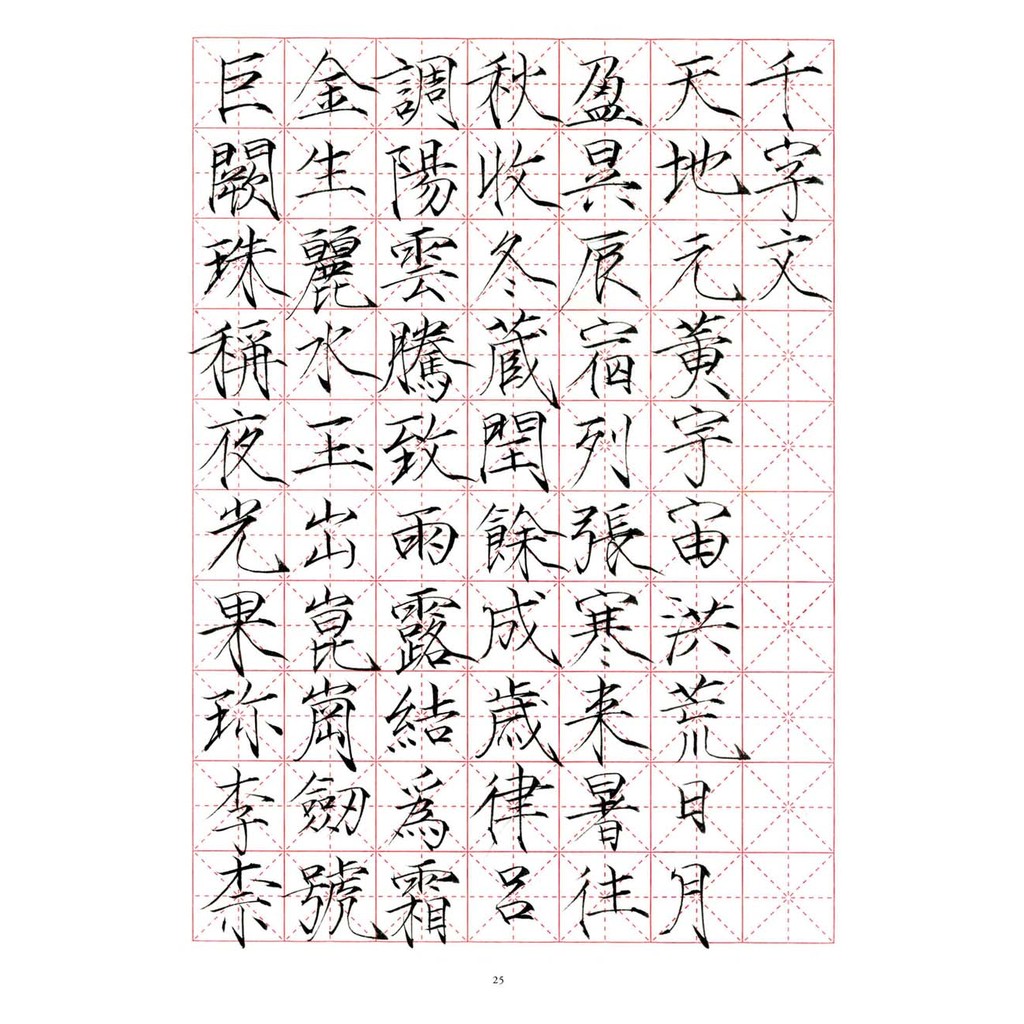 千字文
天地元黄宇宙洪荒日月
盈昃辰宿列張寒来暑往
秋收冬蔵閏餘成歳律呂
調陽雲騰致雨露結爲霜
金生麗水玉出崑崗劒號
巨闕珠稱夜光果珎李柰
25